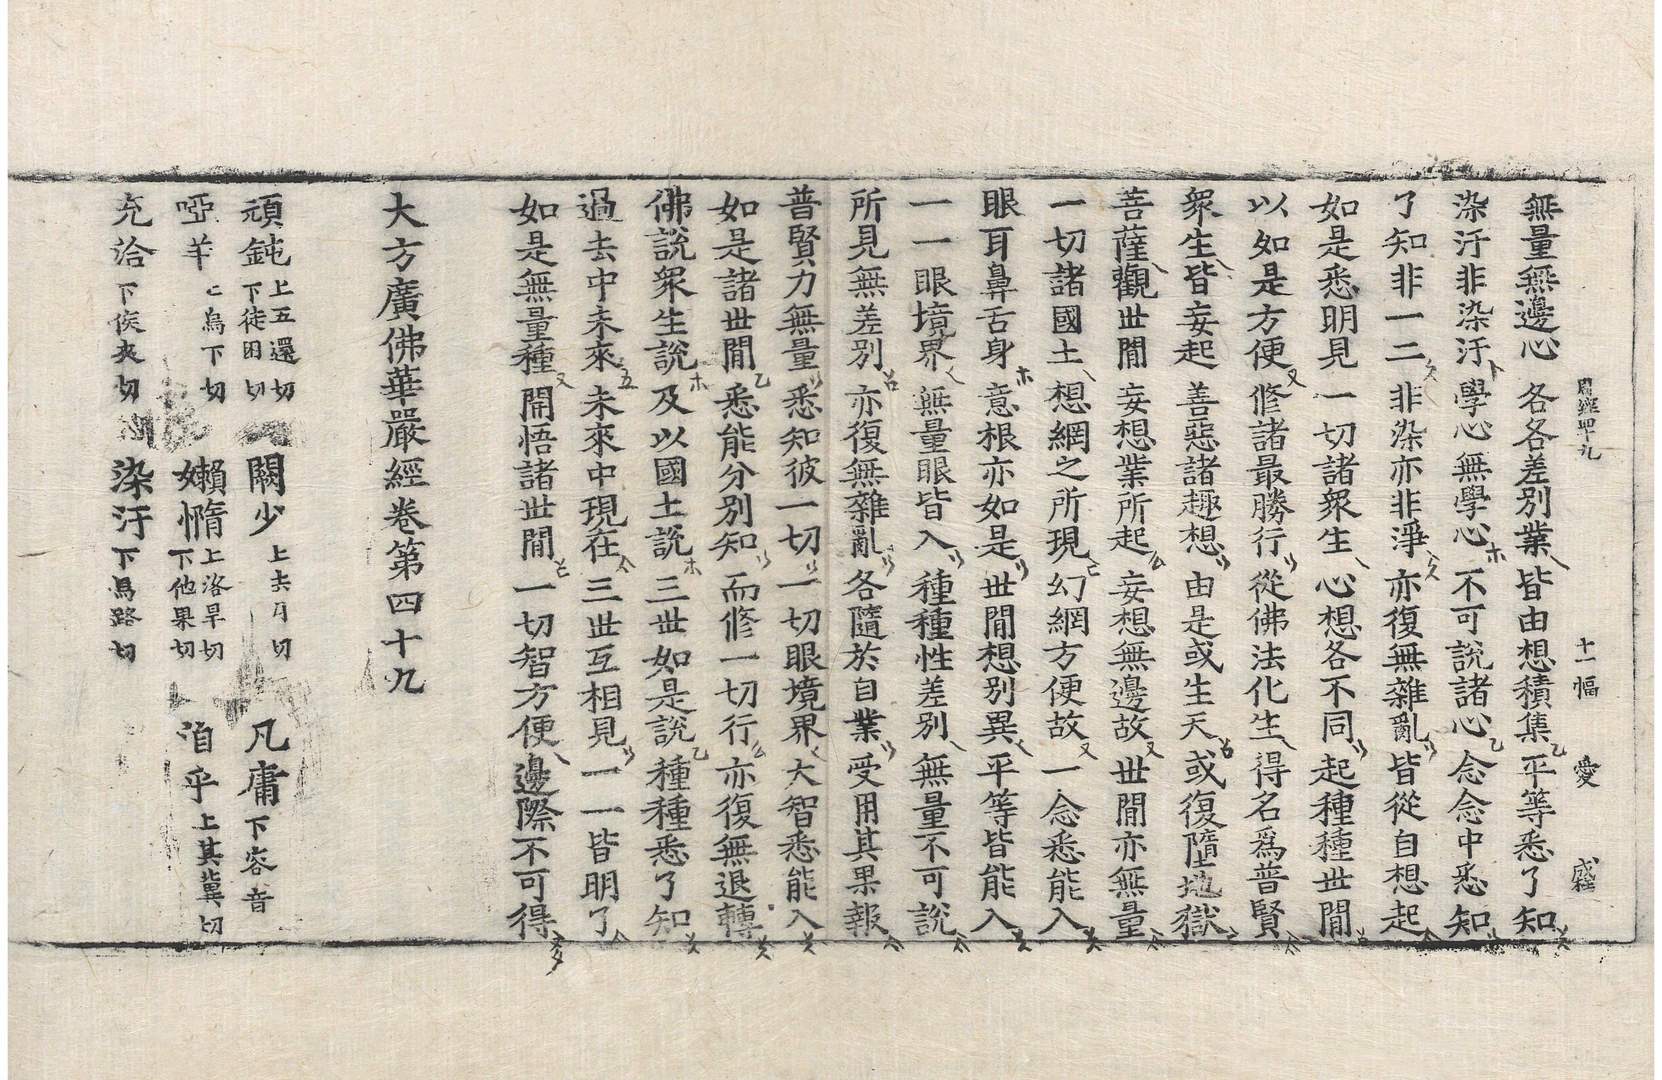 十一幅　愛
無量無邊心　各各差別業　皆由想積集　平等悉了知
染汙非染汙　學心無學心　不可說諸心　念念中悉知
了知非一二　非染亦非淨　亦復無雜亂　皆從自想起
如是悉明見　一切諸衆生　心想各不同　起種種世閒
以如是方便　修諸最勝行　從佛法化生　得名爲普賢
衆生皆妄起　善惡諸趣想　由是或生天　或復墮地獄
菩薩觀世閒　妄想業所起　妄想無邊故　世閒亦無量
一切諸國土　想網之所現　幻網方便故　一念悉能入
眼耳鼻舌身　意根亦如是　世閒想別異　平等皆能入
一一眼境界　無量眼皆入　種種性差別　無量不可說
所見無差別　亦復無雜亂　各隨於自業　受用其果報
普賢力無量　悉知彼一切　一切眼境界　大智悉能入
如是諸世閒　悉能分別知　而修一切行　亦復無退轉
佛說衆生說　及以國土說　三世如是說　種種悉了知
過去中未來　未來中現在　三世互相見　一一皆明了
如是無量種　開悟諸世閒　一切智方便　邊際不可得
大方廣佛華嚴經卷第四十九
頑鈍　上五還切下徒困切　闕少　上去月切　凡庸　下容音
啞羊　上烏下切　嬾惰　上洛旱切下他果切　洎乎　上其冀切
充洽　下侯夾切　染汙　下烏路切